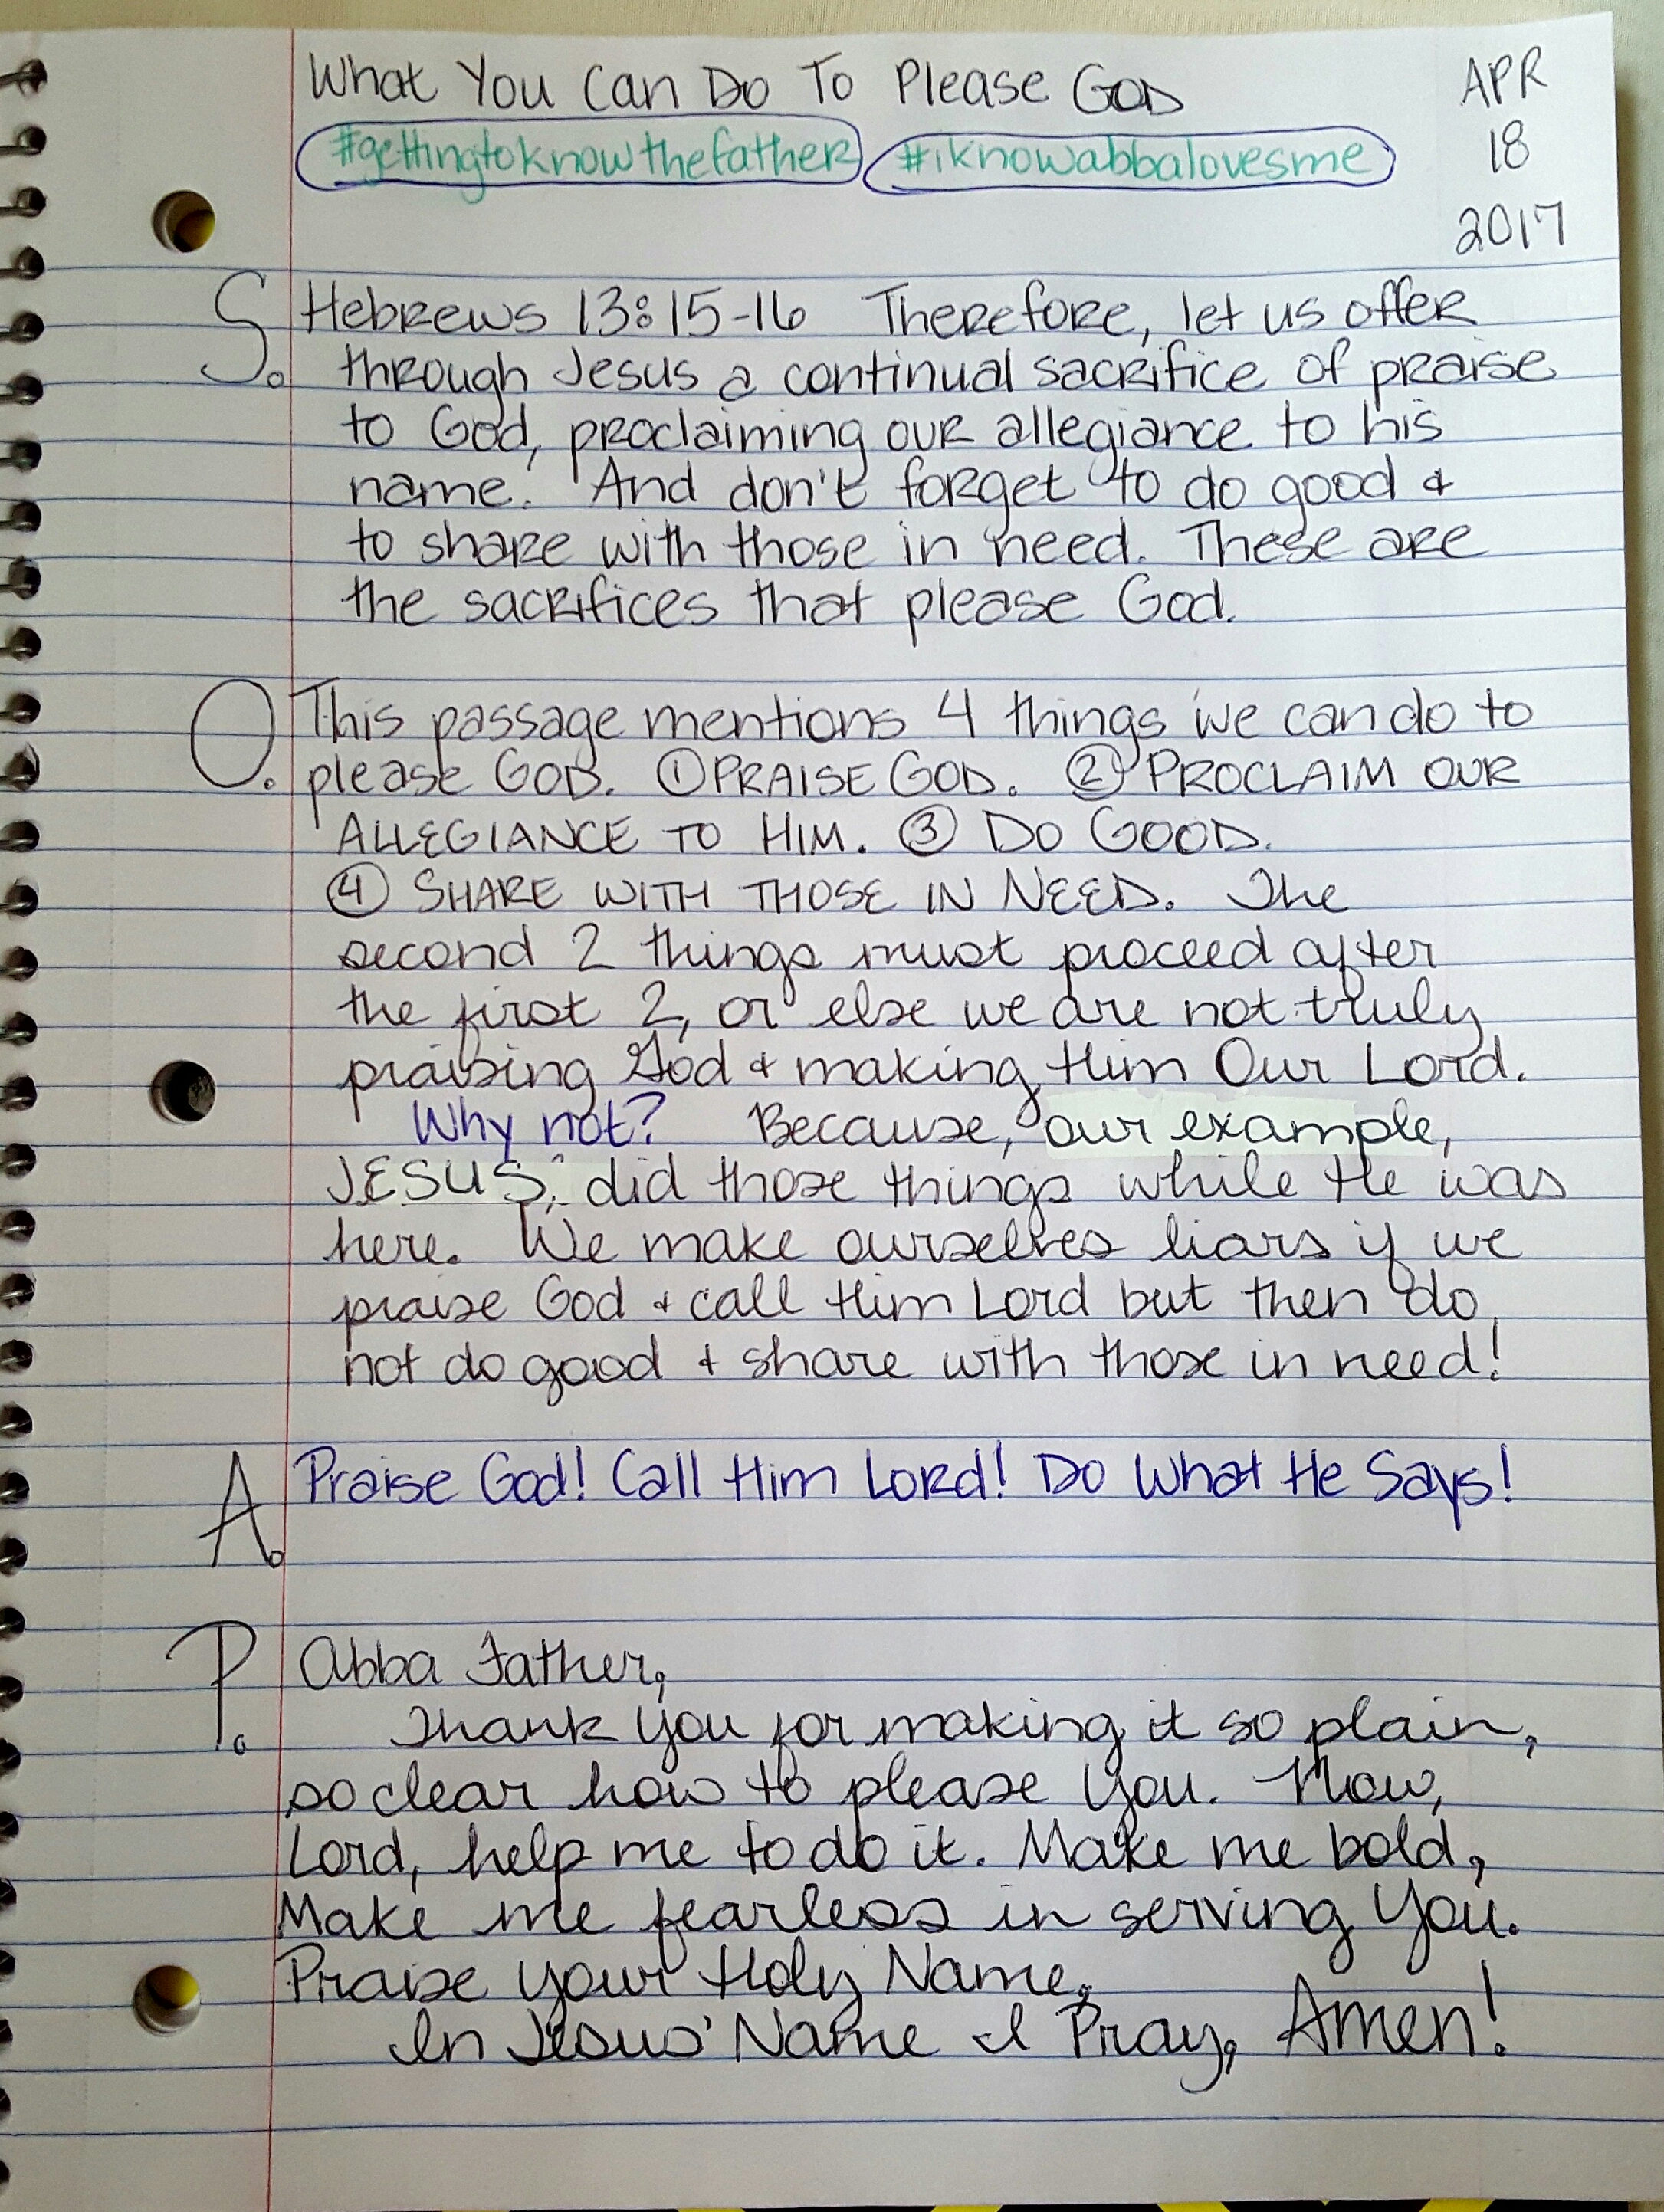 What You Can Do To Please GOD
APR
18
2017
#gettingtoknowthefather #iknowabbalovesme
S. Hebrews 13:15-16 Therefore, let us offer
through Jesus a continual sacrifice of praise
to God, proclaiming our allegiance to his
name. And don't forget to do good &
to share with those in need. These are
the sacrifices that please God.
O. This passage mentions 4 things we can do to
please GOD. ① PRAISE GOD. ② PROCLAIM OUR
ALLEGIANCE TO HIM. ③ DO GOOD.
④ SHARE WITH THOSE IN NEED. The
second 2 things must proceed after
the first 2, or else we are not truly
praising God & making Him Our Lord.
Why not? Because, our example,
JESUS, did those things while He was
here. We make ourselves liars if we
praise God & call Him Lord but then do
not do good & share with those in need!
A. Praise God! Call Him Lord! Do What He Says!
P. Abba Father,
Thank You for making it so plain,
so clear how to please You. Now,
Lord, help me to do it. Make me bold,
Make me fearless in serving You.
Praise Your Holy Name,
In Jesus' Name I Pray, Amen!